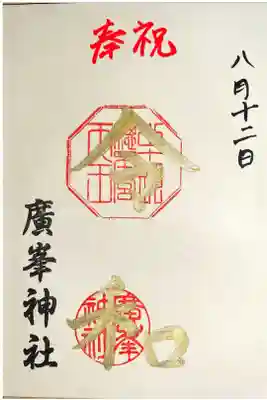 奉祝
八月十二日
令和
廣峯
神社
廣峯神社